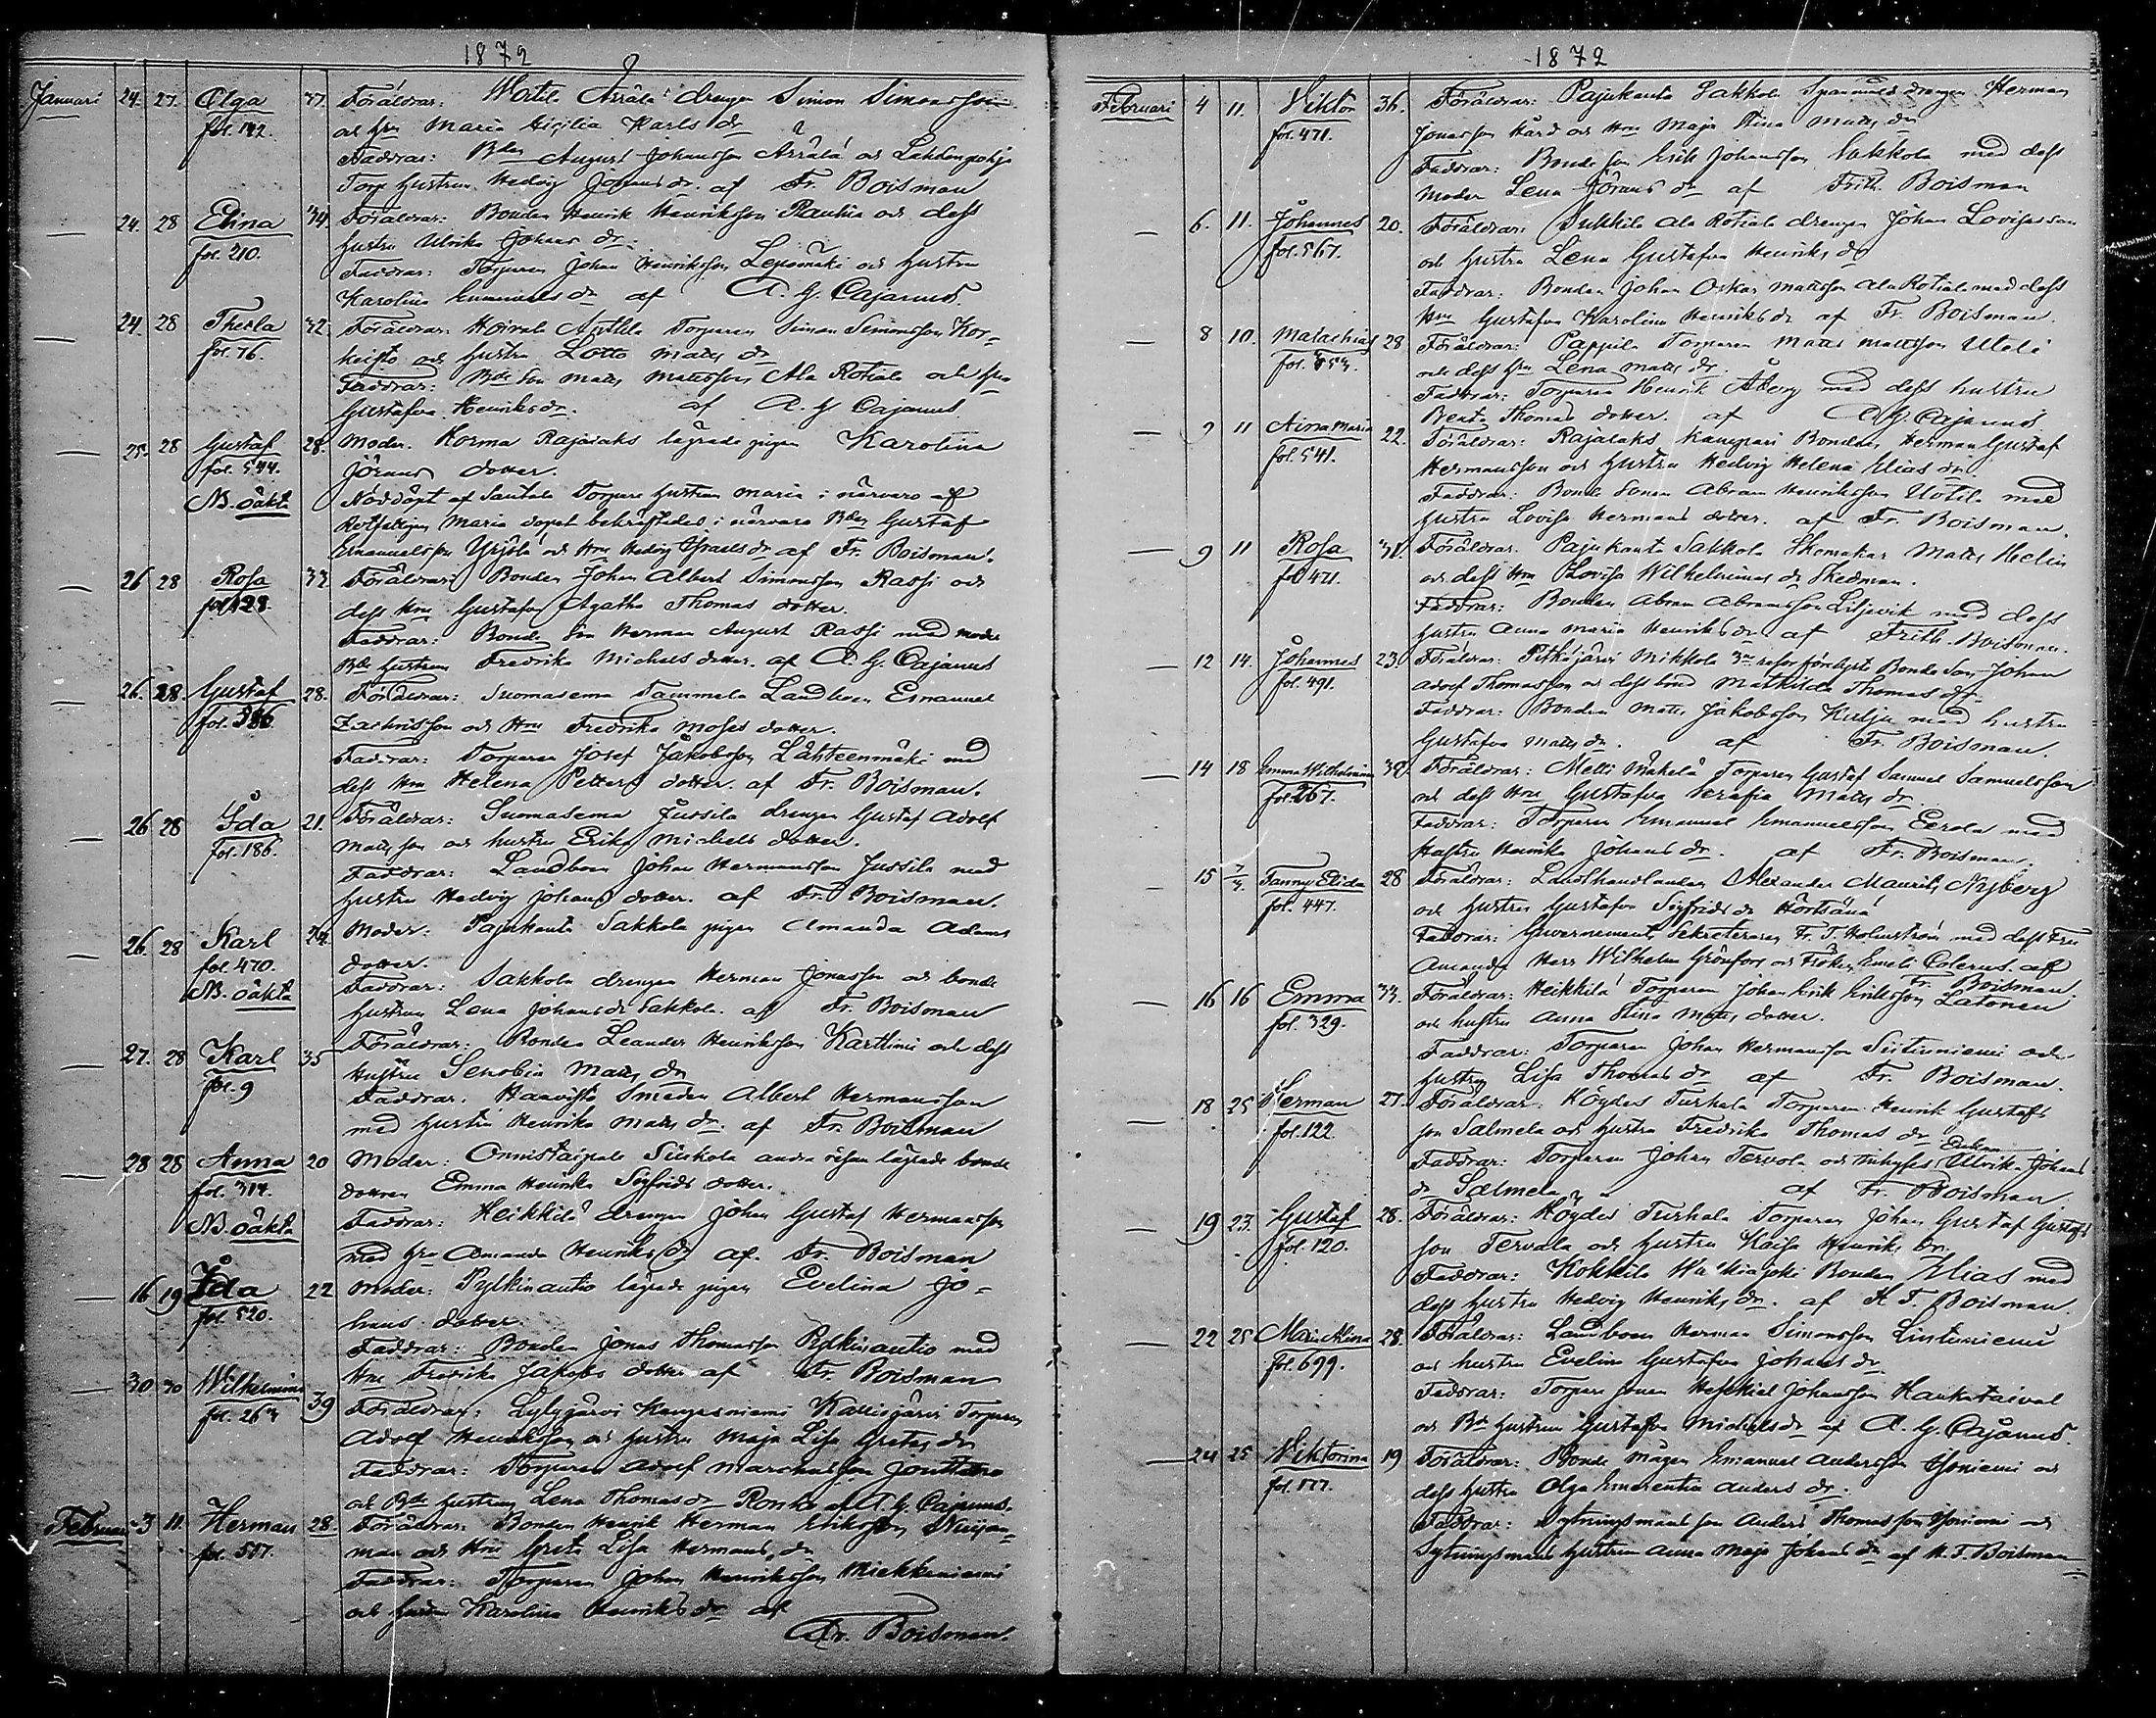 1872
Januari 24. 27. Olga 37. Föräldrar: Wortila Arrälä drengen Simon Simonsson
fol. 142. och hru Maria Cicilia Karls dr
Faddrar: Bden August Johansson Arrälä och Lahdenpohja
Torp hustrun Hedvig Johans dr. af Fr. Boisman
— 24. 28 Elina 34. Föräldrar: Bonden Henrik Henriksson Rauhia och dess
fol. 210. hustru Ulrika Johans dr.
Faddrar: Torparen Johan Henriksson Lepomäki och hustru
Karolina Emanuels dr af A. G. Cajanus.
— 24. 28 Thecla 32. Föräldrar: Anttila Torparen Simon Simonsson Kor-
fol. 76. keisto och hustru Lotta Matts dr
Faddrar: Bde Son Matts Mattsson Ala Rotiala och hru
Gustafva Henriks dr. af A. G. Cajanus
— 25. 28 Gustaf 28. Moder. Korma Rajalaks lägrade pigan Karolina
fol. 544. Jörans dotter.
NB. oäkta Nöddöpt af Santala Torpare hustrun Maria i närvaro af
Maria dopet bekräftades i närvaro Bden Gustaf
Emanuelsson Yrjölä och Hru Hedvig Israels dr af Fr. Boisman.
— 26 28 Rosa 33. Föräldrar: Bonden Johan Albert Simonsson Rassi och
fol. 128. dess Hru Gustafva Agatha Thomas dotter.
Faddrar: Bonde Son Herman August Rassi med moder
Bde hustrun Fredrika Michels dotter. af A. G. Cajanus
— 26. 28. Gustaf 28. Föräldrar: Suomasema Tammela Landboen Emanuel
fol. 386 Zachrisson och Hru Fredrika Moses dotter.
Faddrar: Torparen Josef Jakobsson Lähteenmäki med
dess Hru Helena Petters dotter. af Fr. Boisman.
— 26 28 Ida 21. Föräldrar: Suomasema Jussila drengen Gustaf Adolf
fol. 186. Matts son och hustru Erika Michels dotter.
Faddrar: Landboen Johan Hermansson Jussila med
hustru Hedvig Johans dotter. af Fr. Boisman.
— 26. 28 Karl 24. Moder: Pajukanta Sakkola pigan Amanda Adams
fol. 470. dotter.
NB. oäkta Faddrar: Sakkola drengen Herman Jonasson och bonde
hustrun Lena Johans dr Sakkola. af Fr. Boisman
— 27. 28 Karl 35 Föräldrar: Bonden Leander Henriksson Karttimi och dess
fol. 9 Hustru Senobia Matts dr
Faddrar. Haavisto Smeden Albert Hermansson
med hustru Henrika Matts dr. af Fr. Boisman
— 28 28 Anna 20 Moder: Onnistaipale Siiskola andra resan lägrade bonde
fol. 314. dottren Emma Henrika Sigfrids dotter.
NB. oäkta Faddrar: Heikkilä drengen Johan Gustaf Hermansson
med hru Amanda Henriks dr af. Fr. Boisman
— 16 19 Ida 22 Moder: Pylkinautio lägrade pigan Evelina Jo-
fol. 520. hans dotter.
Faddrar: Bonden Jonas Thomasson Pylkinautio med
Hru Fredrika Jakobs dotter af Fr. Boisman
— 30 30 Wilhelmina 39 Föräldrar: Lylyjärvi Kangasniemi Kallisjärvi Torparen
fol. 263 Adolf Henriksson och hustru Maja Lisa Gretas dr
Faddrar: Torparen Adolf
och Bde hustrun Lena Thomas dr Ronka af A. G. Cajanus.
Februari 3 11. Herman 28 Föräldrar: Bonden Henrik Herman Eriksson
fol. 517. maa och Hru Greta Lisa Hermans dr
Faddrar: Torparen Johan Henriksson Miekkaniemi
och hustru Karolina Henriks dr af
Fr. Boisman.
1872
Februari 4 11. Viktor 36. Föräldrar: Pajukanta Sakkola Spannmåls drengen Herman
fol. 471. Jonasson Hård och Hru Maja Stina Matts dr
Faddrar: Bonde Son Erik Johansson Sakkola med dess
moder Lena Jörans dr af Frith. Boisman
— 6. 11. Johannes 20. Föräldrar: Ala Rotiala drengen Johan Lovisasson
fol. 567. och hustru Lena Gustafva Henriks dr
Faddrar: Bonden Johan Oskar Mattsson Ala Rotiala med dess
Hru Gustafva Karolina Henriks dr af Fr. Boisman.
— 8 10. Malachias 28 Föräldrar: Pappila Torparen Matts Mattsson Uteli
och dess hru Lena Matts dr.
Faddrar: Torparen Henrik Åberg med dess hustru
Beata Thomas dotter. af A. G. Cajanus.
— 9 11 Aina Maria 22. Föräldrar: Rajalaks Kamppari Bonden Herman Gustaf
fol. 541. Hermansson och hustru Hedvig Helena Elias dr.
Faddrar: Bonde Sonen Abram Henriksson Uotila med
hustru Lovisa Hermans dotter. af Fr. Boisman.
— 9 11 Rosa 31. Föräldrar. Pajukanta Sakkola Skomakar Matts Helin
fol 471. och dess Hru Lovisa Wilhelmina dr Thedman.
Faddrar: Bonden Abram Abramsson Liljevik med dess
hustru Anna Maria Henriks dr af Frith. Boisman.
— 12 14. Johannes 23. Föräldrar: Pitkäjärvi Mikkola Bonde Son Johan
fol. 491. Adolf Thomasson och dess brud Mathilda Thomas dr
Faddrar: Bonden Matts Jakobsson Kulju med hustru
Gustafva Matts dr. af Fr. Boisman.
— 14 18 Emma Wilhelmina 32. Föräldrar: Metti Mäkelä Torparen Gustaf Samuel Samuelsson
fol. 267. och dess Hru Gustafva Serafia Matts dr.
Faddrar: Torparen Emanuel Emanuelsson Eerola med
Hustru Henrika Johans dr. af Fr. Boisman.
— 15 3/3. Fanny Elida 28 Föräldrar: Landthandlanden Alexander Maurits Nyberg
fol. 447. och hustru Gustafva Sigfrids dr Hörtsänä
Faddrar: Guvernements Sekreteraren Fr. T. Holmström med dess Fru
Amanda Herr Wilhelm Grönfors och Fröken Emeli Colerus. af
Fr. Boisman.
— 16 16 Emma 33. Föräldrar: Heikkilä Torparen Johan Erik Eriksson Latonen
fol. 329. och hustru Anna Stina Matts dotter.
Faddrar: Torparen Johan Hermansson Siitinniemi och
hustru Lisa Thomas dr af Fr. Boisman.
— 18 25 Herman 27. Föräldrar. Köyders Turkola Torparen Henrik Gustafs
fol. 122. son Salmela och hustru Fredrika Thomas dr
Faddrar: Torparen Johan Tervola och Inhyses Enkan Ulrika Johans
dr Salmela af Fr. Boisman.
— 19 23. Gustaf 28. Föräldrar: Köyders Turkola Torparen Johan Gustaf Gustafs
fol. 120. son Tervala och hustru Kaisa Henriks dr.
Faddrar: Kokkila Walkiajoki Bonden Elias med
dess hustru Hedvig Henriks dr. af K. F. Boisman.
— 22 25 Maria Alina 28. Föräldrar: Landboen Herman Simonsson Lintuniemi
fol. 699. och hustru Evelina Gustafva Johans dr
Faddrar: Torpare Sonen Hesekiel Johansson Haukataival
och Bde hustrun Gustafva Michels dr af A. G. Cajanus.
— 24 25 Viktorina 19 Föräldrar: Bonde mågen Emanuel Andersson Isoniemi och
fol. 177. dess hustru Olga Emerentia Anders dr.
Faddrar: Sytningsmans son Anders Thomasson Isoniemi och
Sytningsmans hustrun Anna Maja Johans dr af K. F. Boisman